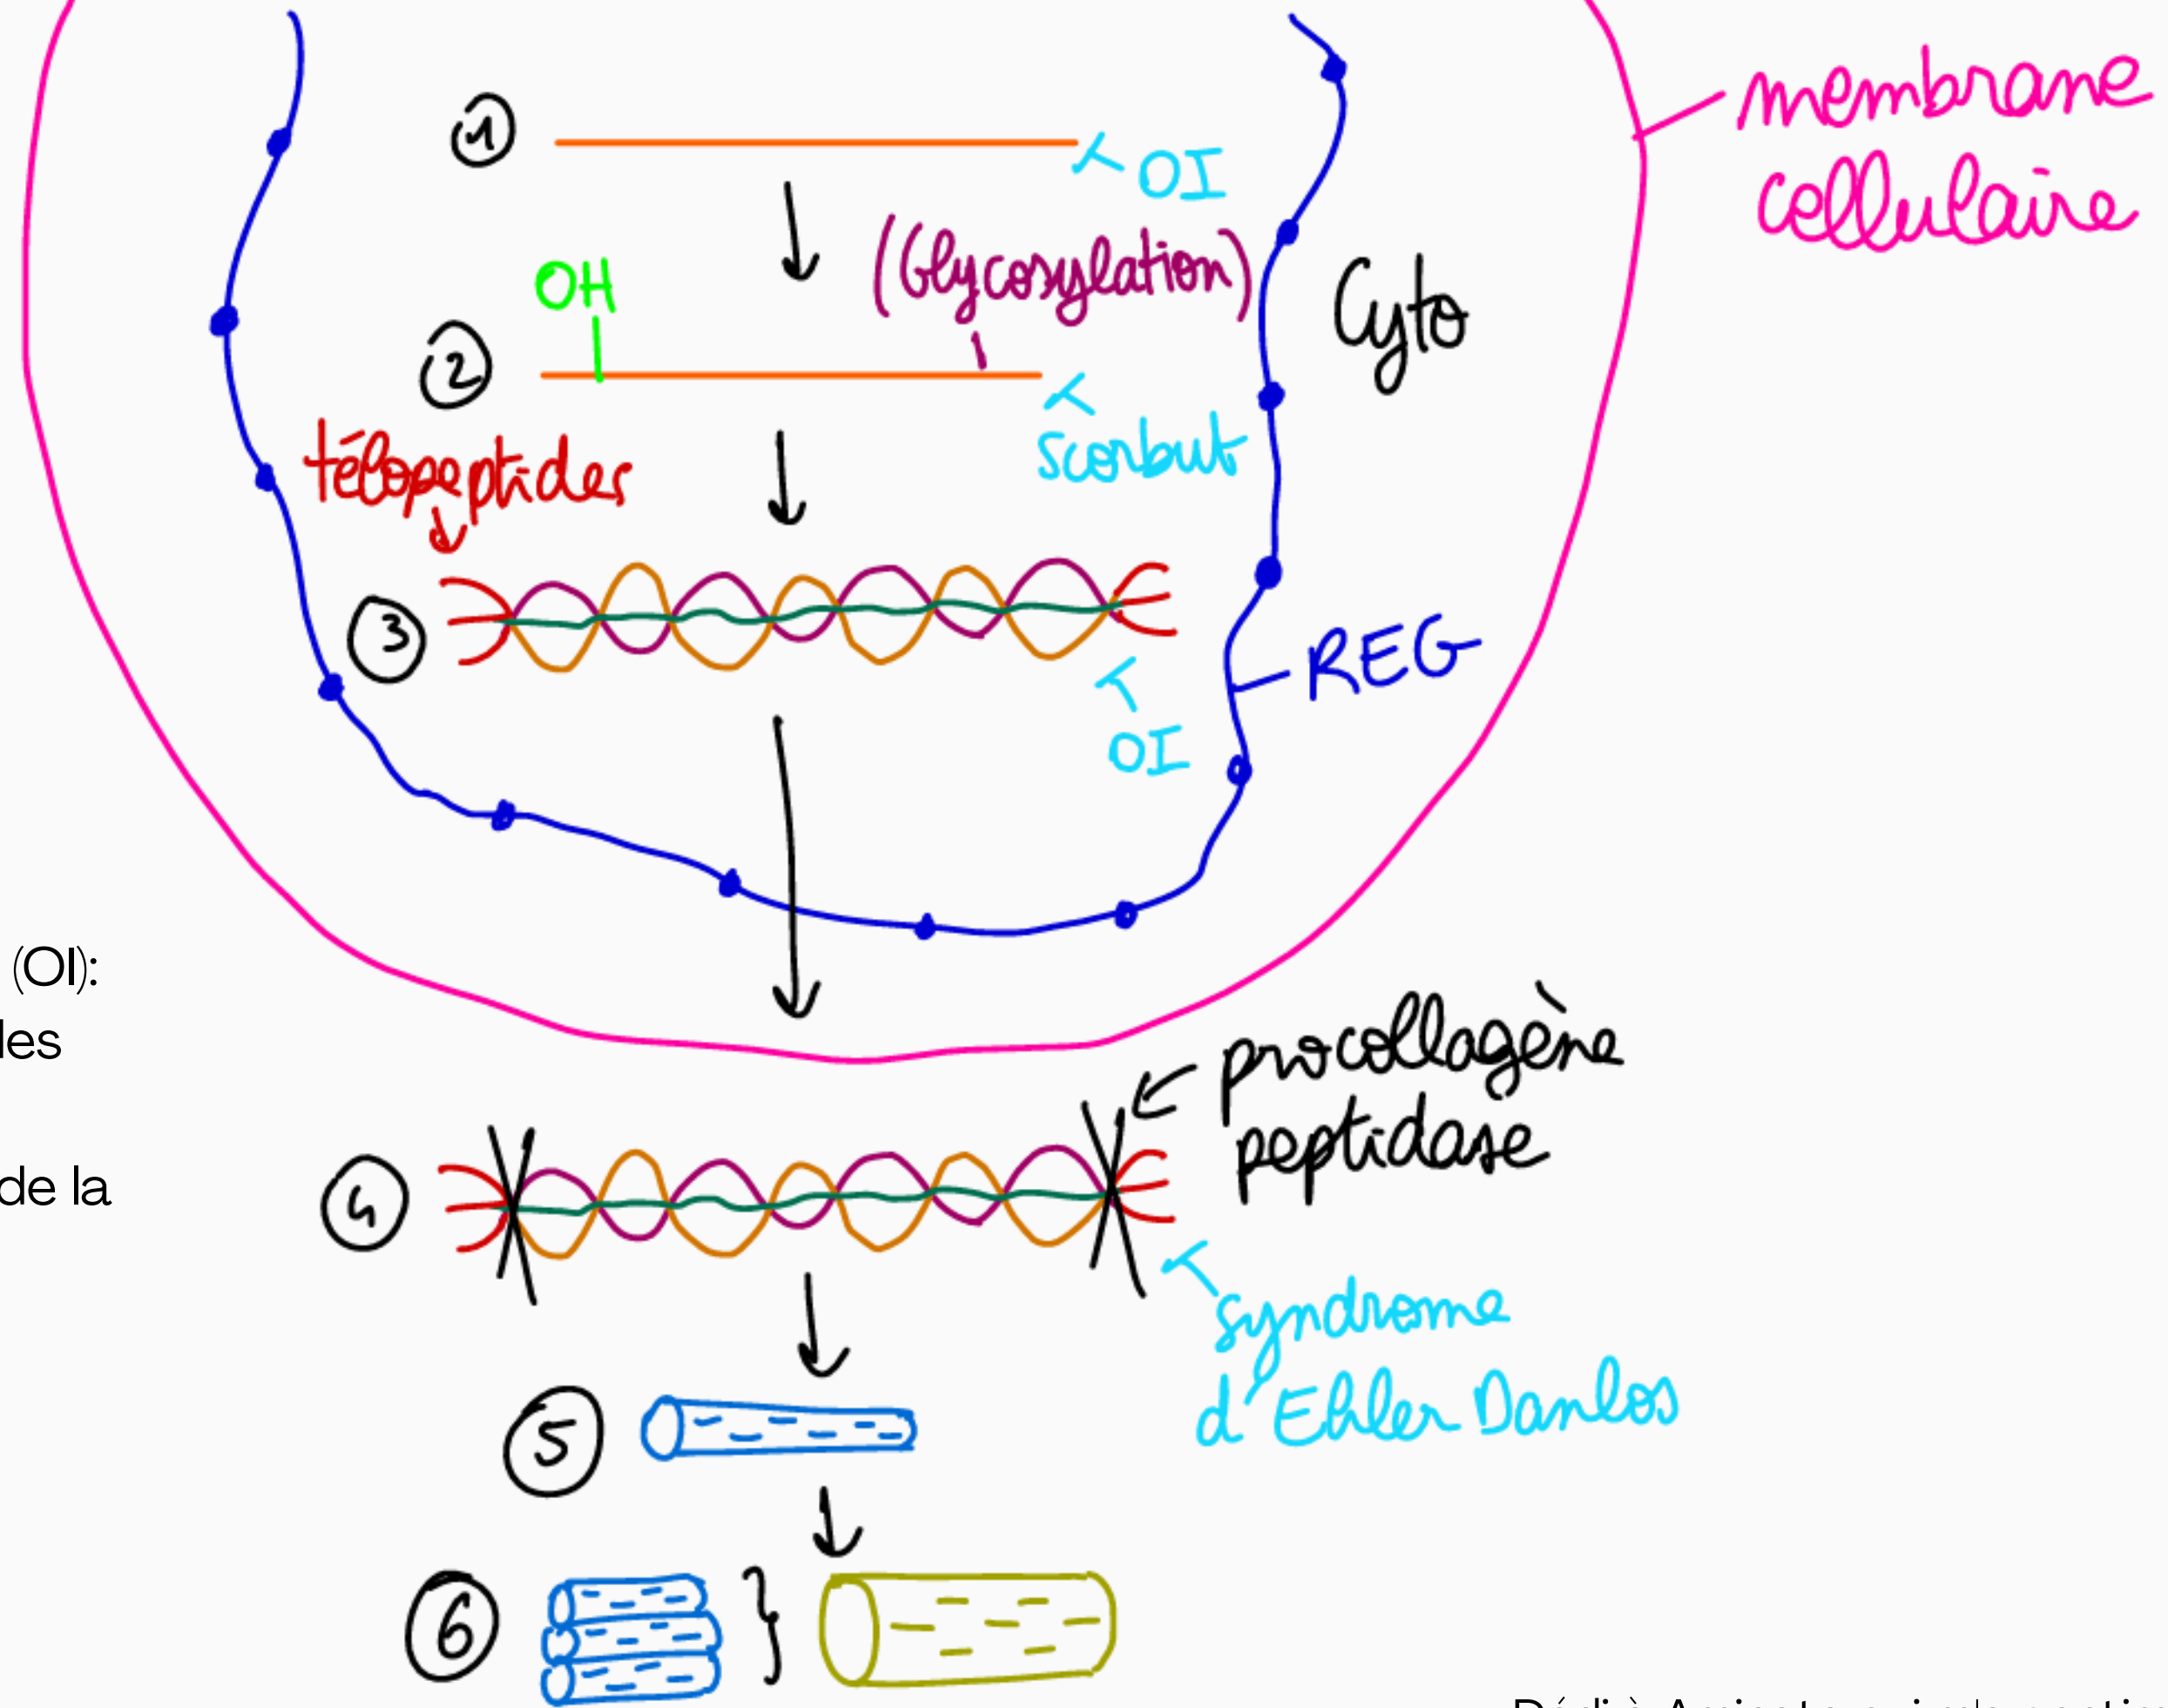 membrane
cellulaire
1
OI
(Glycosylation)
OH
Cyto
2
scorbut
télopeptides
3
REG
OI
(OI):
les
procollagène
peptidase
de la
4
syndrome
d'Ehler Danlos
5
6